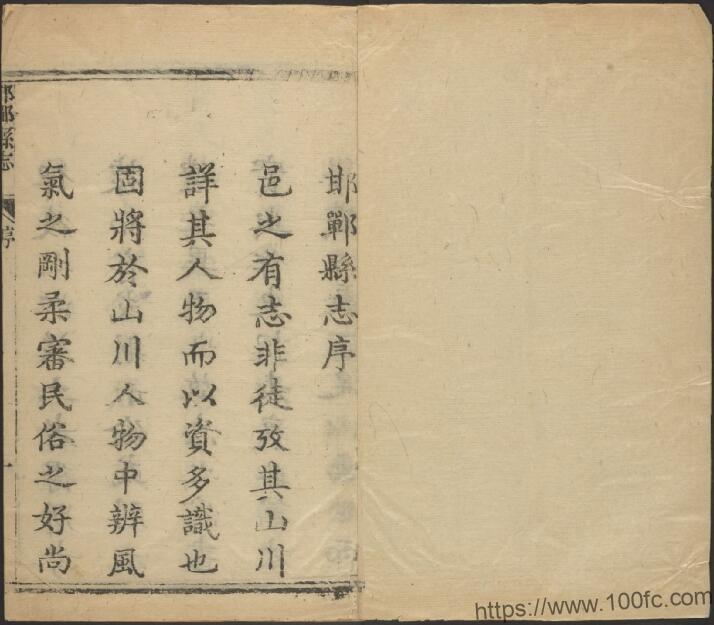 邯鄲縣志序
邑之有志非徒攷其山川
詳其人物而以資多識也
固將於山川人物中辨風
氣之剛柔審民俗之好尚
邯鄲縣志
序
一
https://www.100fc.com